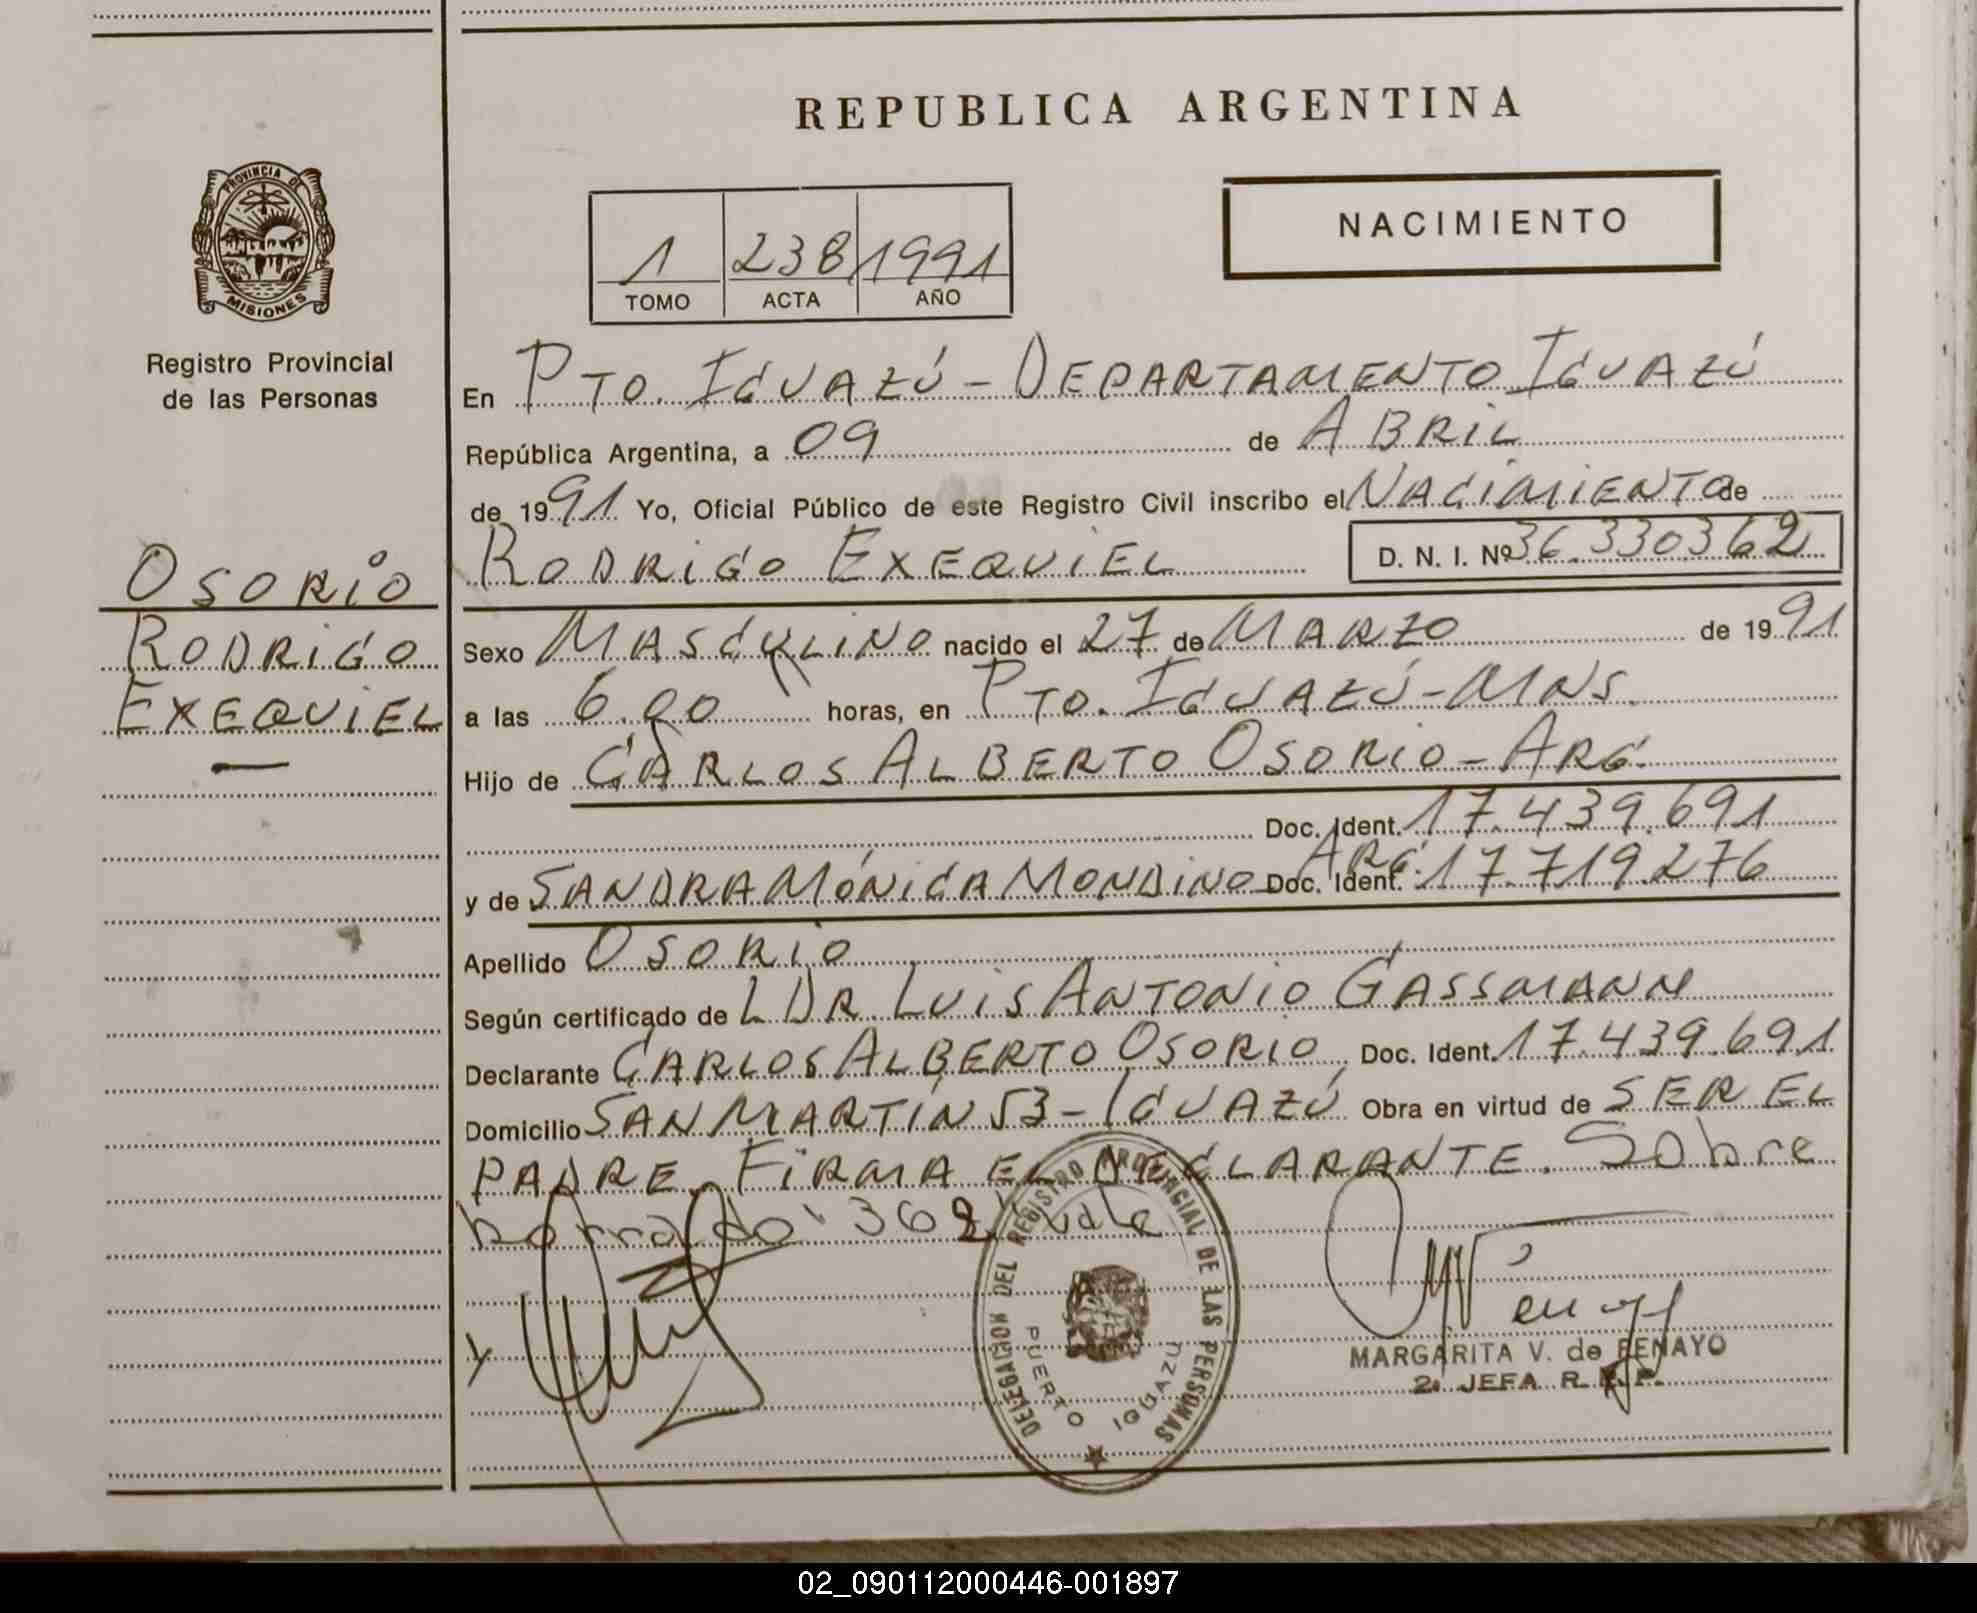 REPUBLICA ARGENTINA
PROVINCIA DE
MISIONES
Registro Provincial
de las Personas
NACIMIENTO
1 238 1991
TOMO ACTA AÑO
En PTO. IGUAZÚ - DEPARTAMENTO IGUAZÚ
República Argentina, a 09 de ABRIL
de 1991 Yo, Oficial Público de este Registro Civil inscribo el NACIMIENTO de
RODRIGO EXEQUIEL D. N. I. Nº 36.330362
OSORIO
RODRIGO
EXEQUIEL
Sexo MASCULINO nacido el 27 de MARZO de 1991
a las 6.00 horas, en PTO. IGUAZÚ - MNS.
Hijo de CARLOS ALBERTO OSORIO - ARG.
Doc. Ident. 17.439.691
y de SANDRA MÓNICA MONDINO ARG. Doc. Ident. 17.719.276
Apellido OSORIO
Según certificado de L DR. LUIS ANTONIO GASSMANN
Declarante CARLOS ALBERTO OSORIO Doc. Ident. 17.439.691
Domicilio SAN MARTÍN 53 - IGUAZÚ Obra en virtud de SER EL
PADRE. FIRMA EL DECLARANTE. Sobre
borrado: 362 vale
DELEGACION DEL REGISTRO PROVINCIAL DE LAS PERSONAS
PUERTO IGUAZU
MARGARITA V. de BENAYO
2. JEFA R. P. P.
02_090112000446-001897